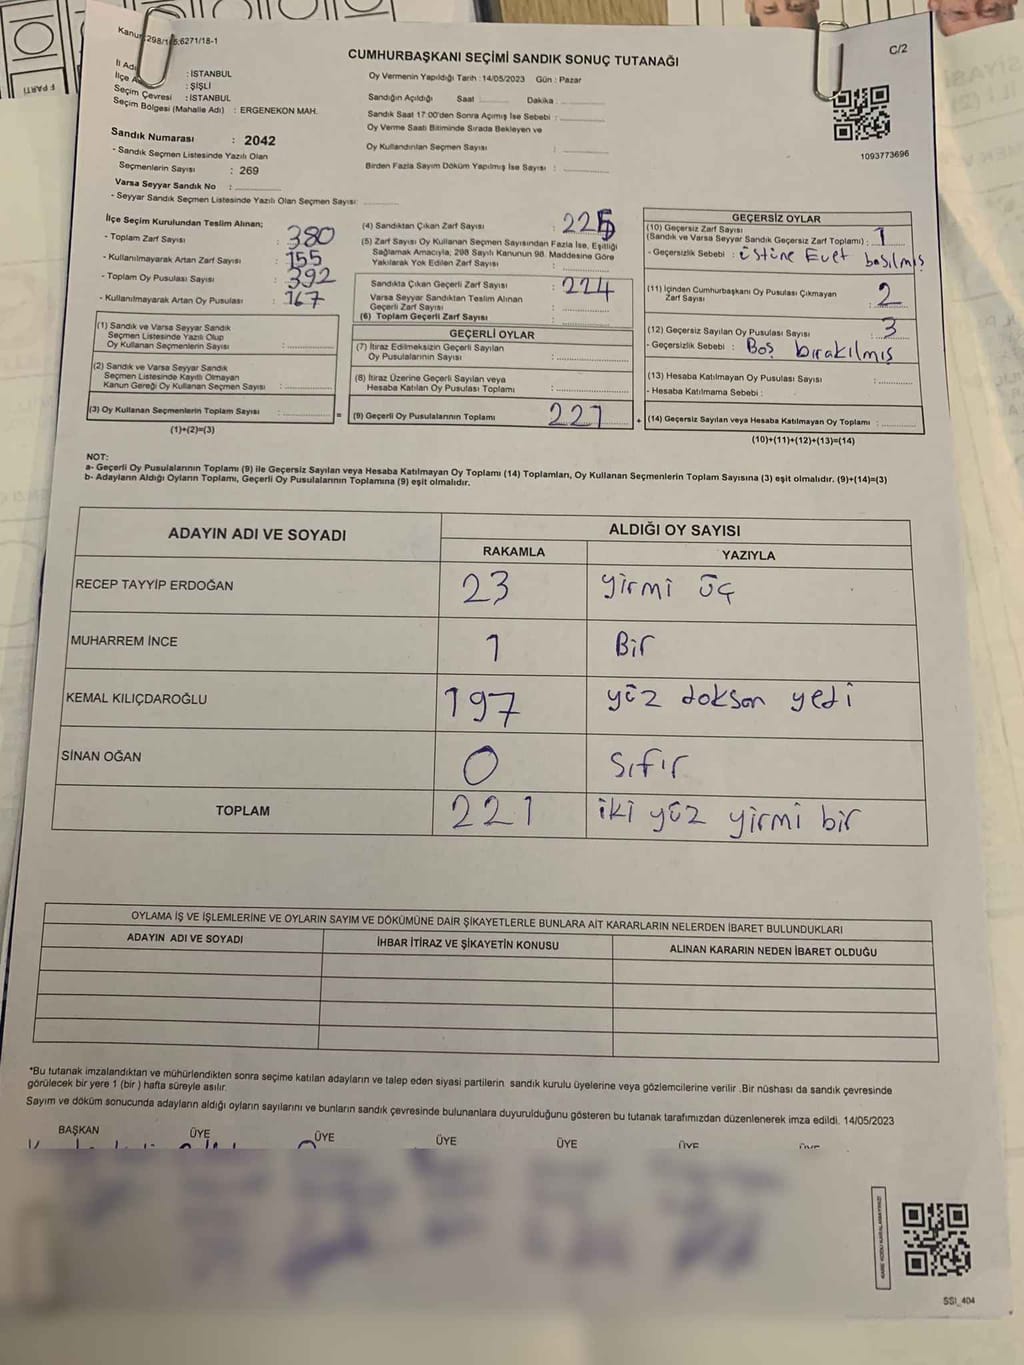 Kanun:298/105;6271/18-1
C/2
CUMHURBAŞKANI SEÇİMİ SANDIK SONUÇ TUTANAĞI
İl Adı : İSTANBUL
İlçe A : ŞİŞLİ
Seçim Çevresi : İSTANBUL
Seçim Bölgesi (Mahalle Adı) : ERGENEKON MAH.
Oy Vermenin Yapıldığı Tarih : 14/05/2023 Gün : Pazar
Sandığın Açıldığı Saat Dakika :
Sandık Saat 17:00'den Sonra Açımış İse Sebebi :
Oy Verme Saati Bitiminde Sırada Bekleyen ve
Oy Kullandırılan Seçmen Sayısı :
Birden Fazla Sayım Döküm Yapılmış İse Sayısı :
1093773696
Sandık Numarası : 2042
- Sandık Seçmen Listesinde Yazılı Olan
Seçmenlerin Sayısı : 269
Varsa Seyyar Sandık No :
- Seyyar Sandık Seçmen Listesinde Yazılı Olan Seçmen Sayısı:
İlçe Seçim Kurulundan Teslim Alınan;
- Toplam Zarf Sayısı : 380
- Kullanılmayarak Artan Zarf Sayısı : 155
- Toplam Oy Pusulası Sayısı : 392
- Kullanılmayarak Artan Oy Pusulası : 167
(1) Sandık ve Varsa Seyyar Sandık
Seçmen Listesinde Yazılı Olup
Oy Kullanan Seçmenlerin Sayısı :
(2) Sandık ve Varsa Seyyar Sandık
Seçmen Listesinde Kayıtlı Olmayan
Kanun Gereği Oy Kullanan Seçmen Sayısı :
(3) Oy Kullanan Seçmenlerin Toplam Sayısı :
(1)+(2)=(3)
(4) Sandıktan Çıkan Zarf Sayısı : 225
(5) Zarf Sayısı Oy Kullanan Seçmen Sayısından Fazla İse, Eşitliği
Sağlamak Amacıyla, 298 Sayılı Kanunun 98. Maddesine Göre
Yakılarak Yok Edilen Zarf Sayısı :
Sandıkta Çıkan Geçerli Zarf Sayısı : 224
Varsa Seyyar Sandıktan Teslim Alınan
Geçerli Zarf Sayısı :
(6) Toplam Geçerli Zarf Sayısı :
GEÇERLİ OYLAR
(7) İtiraz Edilmeksizin Geçerli Sayılan
Oy Pusulalarının Sayısı :
(8) İtiraz Üzerine Geçerli Sayılan veya
Hesaba Katılan Oy Pusulası Toplamı :
= (9) Geçerli Oy Pusulalarının Toplamı 221
GEÇERSİZ OYLAR
(10) Geçersiz Zarf Sayısı
(Sandık ve Varsa Seyyar Sandık Geçersiz Zarf Toplamı) : 1
- Geçersizlik Sebebi : üstüne Evet basılmış
(11) İçinden Cumhurbaşkanı Oy Pusulası Çıkmayan
Zarf Sayısı : 2
(12) Geçersiz Sayılan Oy Pusulası Sayısı : 3
- Geçersizlik Sebebi : Boş bırakılmış
(13) Hesaba Katılmayan Oy Pusulası Sayısı :
- Hesaba Katılmama Sebebi :
+ (14) Geçersiz Sayılan veya Hesaba Katılmayan Oy Toplamı :
(10)+(11)+(12)+(13)=(14)
NOT:
a- Geçerli Oy Pusulalarının Toplamı (9) ile Geçersiz Sayılan veya Hesaba Katılmayan Oy Toplamı (14) Toplamları, Oy Kullanan Seçmenlerin Toplam Sayısına (3) eşit olmalıdır. (9)+(14)=(3)
b- Adayların Aldığı Oyların Toplamı, Geçerli Oy Pusulalarının Toplamına (9) eşit olmalıdır.
ADAYIN ADI VE SOYADI
ALDIĞI OY SAYISI
RAKAMLA YAZIYLA
RECEP TAYYİP ERDOĞAN 23 yirmi üç
MUHARREM İNCE 1 Bir
KEMAL KILIÇDAROĞLU 197 yüz doksan yedi
SİNAN OĞAN 0 Sıfır
TOPLAM 221 iki yüz yirmi bir
OYLAMA İŞ VE İŞLEMLERİNE VE OYLARIN SAYIM VE DÖKÜMÜNE DAİR ŞİKAYETLERLE BUNLARA AİT KARARLARIN NELERDEN İBARET BULUNDUKLARI
ADAYIN ADI VE SOYADI İHBAR İTİRAZ VE ŞİKAYETİN KONUSU ALINAN KARARIN NEDEN İBARET OLDUĞU
*Bu tutanak imzalandıktan ve mühürlendikten sonra seçime katılan adayların ve talep eden siyasi partilerin sandık kurulu üyelerine veya gözlemcilerine verilir .Bir nüshası da sandık çevresinde
görülecek bir yere 1 (bir ) hafta süreyle asılır.
Sayım ve döküm sonucunda adayların aldığı oyların sayılarını ve bunların sandık çevresinde bulunanlara duyurulduğunu gösteren bu tutanak tarafımızdan düzenlenerek imza edildi. 14/05/2023
BAŞKAN ÜYE ÜYE ÜYE ÜYE ÜYE ÜYE
SSI_404